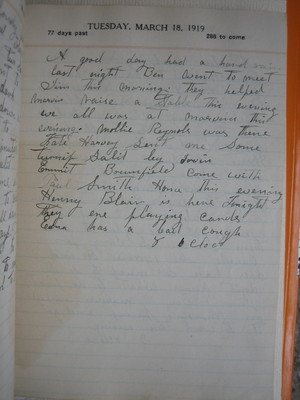 TUESDAY, MARCH 18, 1919
77 days past 288 to come
A good day had a hard
last night Ben went to meet
Jim this morning. they helped
marvin raise a stable this evening
we all was at marvins this
evening. Mollie Reynols was there
Kate Harvey sent me some
turnif Salit by Irvin
Emmit Boumfield come with
Smith Home this evening
Henry Blair is here Tonight
they are playing cards
Edna has a bad cough
8 o clock